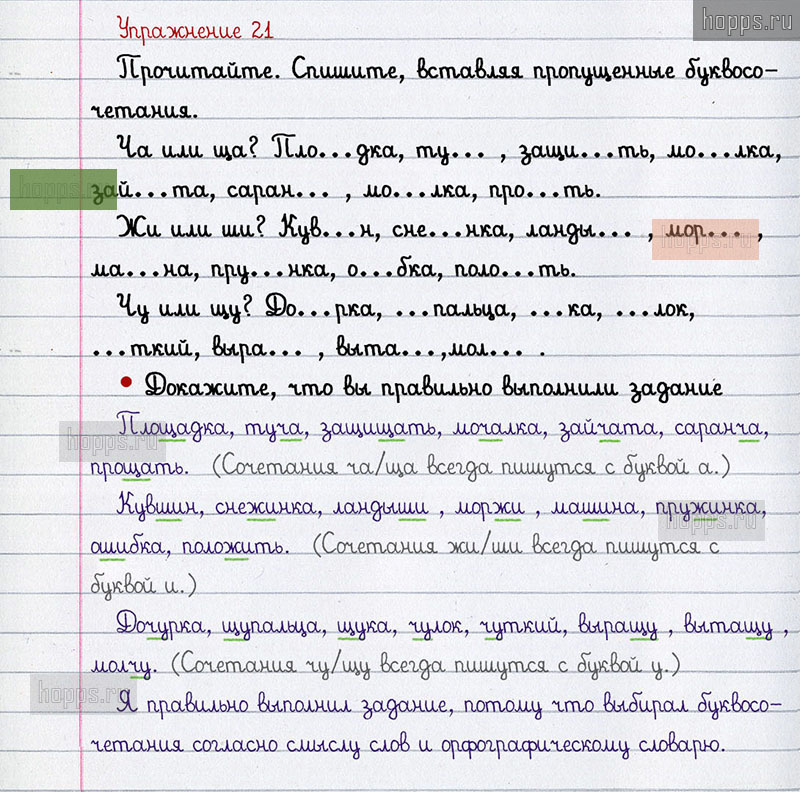 hopps.ru
Упражнение 21
Прочитайте. Спишите, вставляя пропущенные буквосо-
четания.
Ча или ща? Пло...дка, ту... , защи...ть, мо...лка,
зай...та, саран... , мо...лка, про...ть.
hopps.ru
Жи или ши? Кув...н, сне...нка, ланды... , мор... ,
hopps.ru
ма...на, пру...нка, о...бка, поло...ть.
Чу или щу? До...рка, ...пальца, ...ка, ...лок,
...ткий, выра... , выта...,мол... .
• Докажите, что вы правильно выполнили задание
Площадка, туча, защищать, мочалка, зайчата, саранча,
hopps.ru
прощать. (Сочетания ча/ща всегда пишутся с буквой а.)
Кувшин, снежинка, ландыши , моржи , машина, пружинка,
hopps.ru
ошибка, положить. (Сочетания жи/ши всегда пишутся с
буквой и.)
Дочурка, щупальца, щука, чулок, чуткий, выращу , вытащу ,
молчу. (Сочетания чу/щу всегда пишутся с буквой у.)
hopps.ru
Я правильно выполнил задание, потому что выбирал буквосо-
четания согласно смыслу слов и орфографическому словарю.